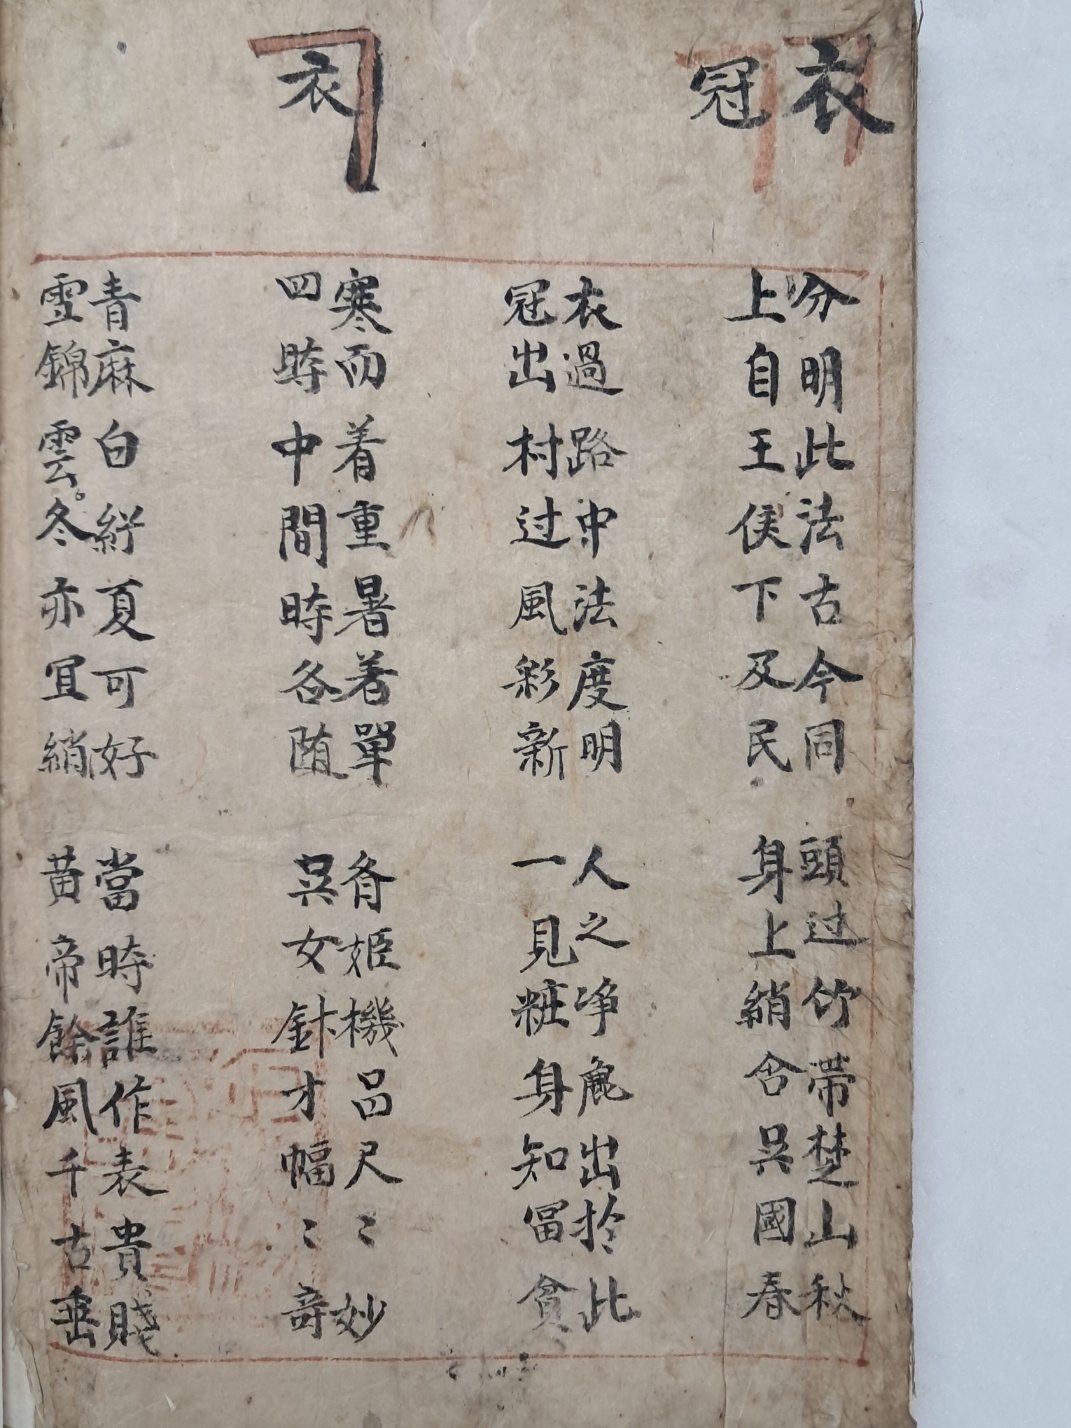 衣冠
分明此法古今同 頭过竹帶楚山秋
上自王侯下及民 身上綃含吳國春
衣過路中法度明 人之净麁出扵此
冠出村过風彩新 一見粧身知畐貧
衣
寒而着重暑着單 胥姬機吕尺〻妙
四時中間時各随 吴女針才幅〻奇
青麻白紵夏可好 當時誰作表貴賤
雪錦雲冬亦宜綃 黄帝餘風千古垂